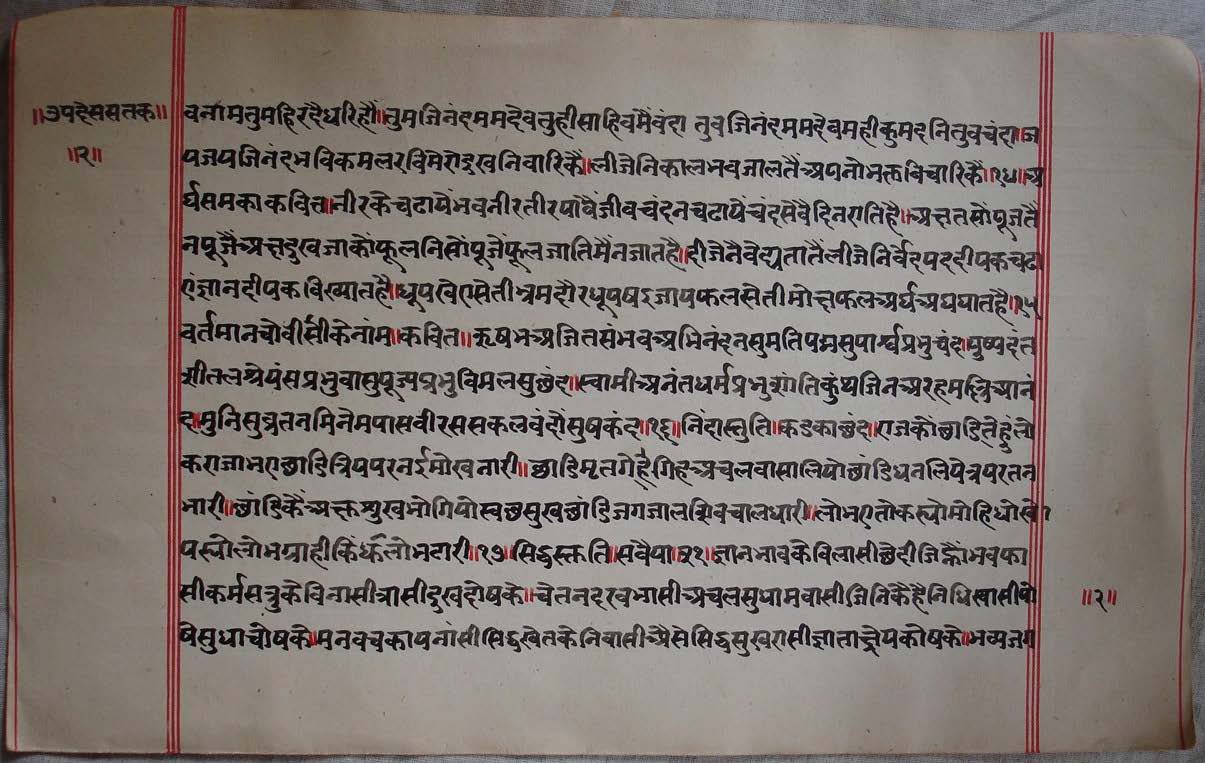 ॥उपदेससतक॥
॥२॥
वनामतुमहिरदैधरिहौं॥तुमजिनंदममदेवतुहीसाहिवमैंवंदा तुवजिनंदममदेवमहीकुमदनितुवचंदा॥ज
पजपजिनंदभविकमलरविमेरोदुखनिवारिकैं॥लीजेनिकालभवजालतैंअपनोभक्तविचारिकैं॥१४॥अ
र्घसमकाकवित्त॥नीरकेचढायेंभवनीरतीरपावैंजीवचंदनचढायेंचंदसेवैदिनरातिहै॥अक्षतसोंपूजतै
नपूजैंअक्षदुखजाकोंफूलनिसोंपूजेंफूलजातिमैंनजातहै॥दीजेनैवेद्यतातैंलीजेनिर्वेदपददीपकचढा
एंज्ञानदीपकविख्यातहै॥धूपखेएसेतीभ्रमदौरधूपषइजायफलसेतीमोक्षफलअर्घअघघातहै॥१५
वर्तमानचोवीसीकेनांम॥कवित॥ऋषभअजितसंभवअभिनंदनसुमतिपद्मसुपार्श्वप्रभुचंद॥पुष्पदंत
शीतलश्रेयंसप्रभुवासुपूज्यप्रभुविमलसुछंद॥स्वामीअनंतधर्मप्रभुशांतिकुंथजिनअरहमल्लिआनं
द॥मुनिसुव्रतनमिनेमपासवीरससकलवंदौंसुषकंद॥१६॥निंदास्तुति॥कडकाछंद॥राजकोंछाडितेहुंलो
कराजाभएछाडित्रियपरनईमोखनारी॥छाडिमृतगेहगिहअचलवासालियोछांडिधनलियेत्रपरतन
भारी॥छांडिकैंअक्षसुखभोगियोस्वछसुखछांडिजगजालसिवचालधारी॥लोभएतोकस्योमोहिधोखो
पस्योलोभग्राहीकिंर्धूलोभटारी॥१७॥सिद्धस्तुति॥सवैया॥३१॥ज्ञानभावकेविलासीछेदीजिन्हौंभवफा
सीकर्मसत्रुकेविनासीत्रासीदुखदोषके॥चेतनदरवभासीअचलसुधामवासीजिनिकैहैनिधिखासीपो
षेसुधाचोषके॥मनवचकायनांसीसिद्धखेतकेनिवासीऐसेसिद्धसुखरासीज्ञाताज्ञेयकोषके॥भव्यजग
॥२॥